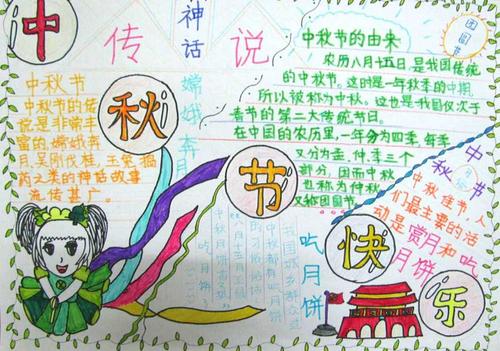 中秋节快乐
传说
神话
嫦娥奔月
团圆节
中秋节
中秋节的传
说是非常丰
富的,嫦娥奔
月,吴刚伐桂,玉兔捣
药之类的神话故事
流传甚广。
中秋节的由来
农历八月十五日,是我国传统
的中秋节。这时是一年秋季的中期,
所以被称为中秋。这也是我国仅次于
春节的第二大传统节日。
在中国的农历里,一年分为四季,每季
又分为孟,仲,季三个
部分,因而中秋
也称为仲秋
又称团圆节。
中秋节
中秋佳节,人
们最主要的活
动是赏月和吃
月饼
吃月饼